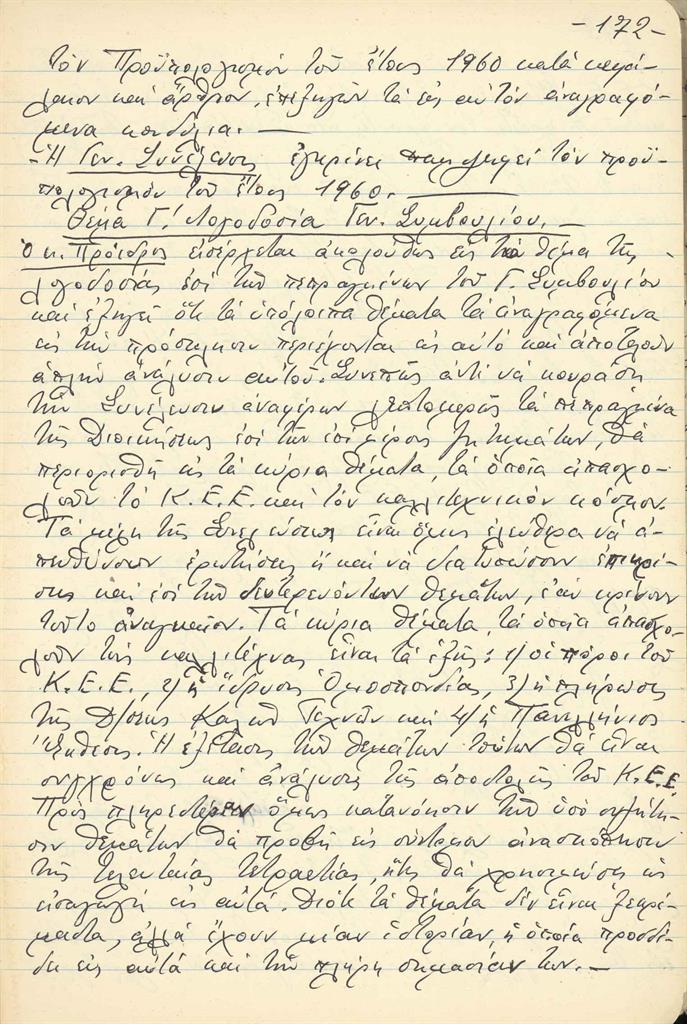 -172-
τὸν Προϋπολογισμὸν τοῦ ἔτους 1960 κατὰ κεφά-
λαιον καὶ ἄρθρον, ἐπεξηγῶν τὰ εἰς αὐτὸν ἀναγραφό-
μενα κονδύλια. —
- Ἡ Γεν. Συνέλευσις ἐγκρίνει παμψηφεὶ τὸν προϋ-
πολογισμὸν τοῦ ἔτους 1960. —
Θέμα Γ! Λογοδοσία Γεν. Συμβουλίου. —
Ὁ κ. Πρόεδρος εἰσέρχεται ἀκολούθως εἰς τὸ θέμα τῆς
λογοδοσίας ἐπὶ τῶν πεπραγμένων τοῦ Γ. Συμβουλίου
καὶ ἐξηγεῖ ὅτι τὰ ὑπόλοιπα θέματα τὰ ἀναγραφόμενα
εἰς τὴν πρόσκλησιν περιέχονται εἰς αὐτὸ καὶ ἀποτελοῦν
ἁπλῆν ἀνάλυσιν αὐτοῦ. Συνεπῶς ἀντὶ νὰ κουράσῃ
τὴν Συνέλευσιν ἀναφέρων λεπτομερῶς τὰ πεπραγμένα
τῆς Διοικήσεως ἐπὶ τῶν ἐπὶ μέρους ζητημάτων, θὰ
περιορισθῇ εἰς τὰ κύρια θέματα, τὰ ὁποῖα ἀπασχο-
λοῦν τὸ Κ.Ε.Ε. καὶ τὸν καλλιτεχνικὸν κόσμον.
Τὰ μέλη τῆς Συνελεύσεως εἶναι ὅμως ἐλεύθερα νὰ ἀ-
πευθύνουν ἐρωτήσεις ἢ καὶ νὰ διατυπώσουν ἐπικρί-
σεις καὶ ἐπὶ τῶν δευτερευόντων θεμάτων, ἐὰν κρίνουν
τοῦτο ἀναγκαῖον. Τὰ κύρια θέματα, τὰ ὁποῖα ἀπασχο-
λοῦν τοὺς καλλιτέχνας εἶναι τὰ ἑξῆς: 1) οἱ πόροι τοῦ
Κ.Ε.Ε., 2) ἡ ἵδρυσις Ὁμοσπονδίας, 3) ἡ πλήρωσις
τῆς Δ/σεως Καλῶν Τεχνῶν καὶ 4) ἡ Πανελλήνιος
Ἔκθεσις. Ἡ ἐξέτασις τῶν θεμάτων τούτων θὰ εἶναι
συγχρόνως καὶ ἀνάλυσις τῆς ἀποστολῆς τοῦ Κ.Ε.Ε.
Πρὸς πληρεστέραν ὅμως κατανόησιν τῶν ὑπὸ συζήτη-
σιν θεμάτων θὰ προβῇ εἰς σύντομον ἀνασκόπησιν
τῆς τελευταίας τετραετίας, ἥτις θὰ χρησιμεύσῃ ὡς
εἰσαγωγὴ εἰς αὐτά. Διότι τὰ θέματα δὲν εἶναι ξεκρέ-
μαστα, ἀλλὰ ἔχουν μίαν ἱστορίαν, ἡ ὁποία προσδί-
δει εἰς αὐτὰ καὶ τὴν πλήρη σημασίαν των. —